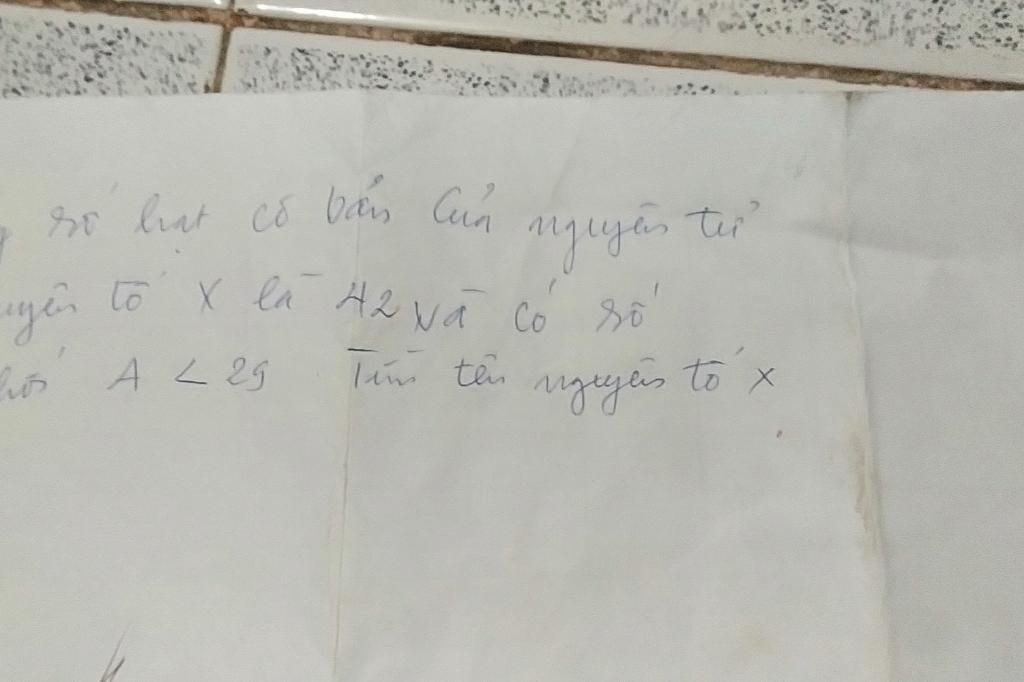 số hạt cơ bản của nguyên tử
tố X là 42 và có số
A < 29 Tìm tên nguyên tố X